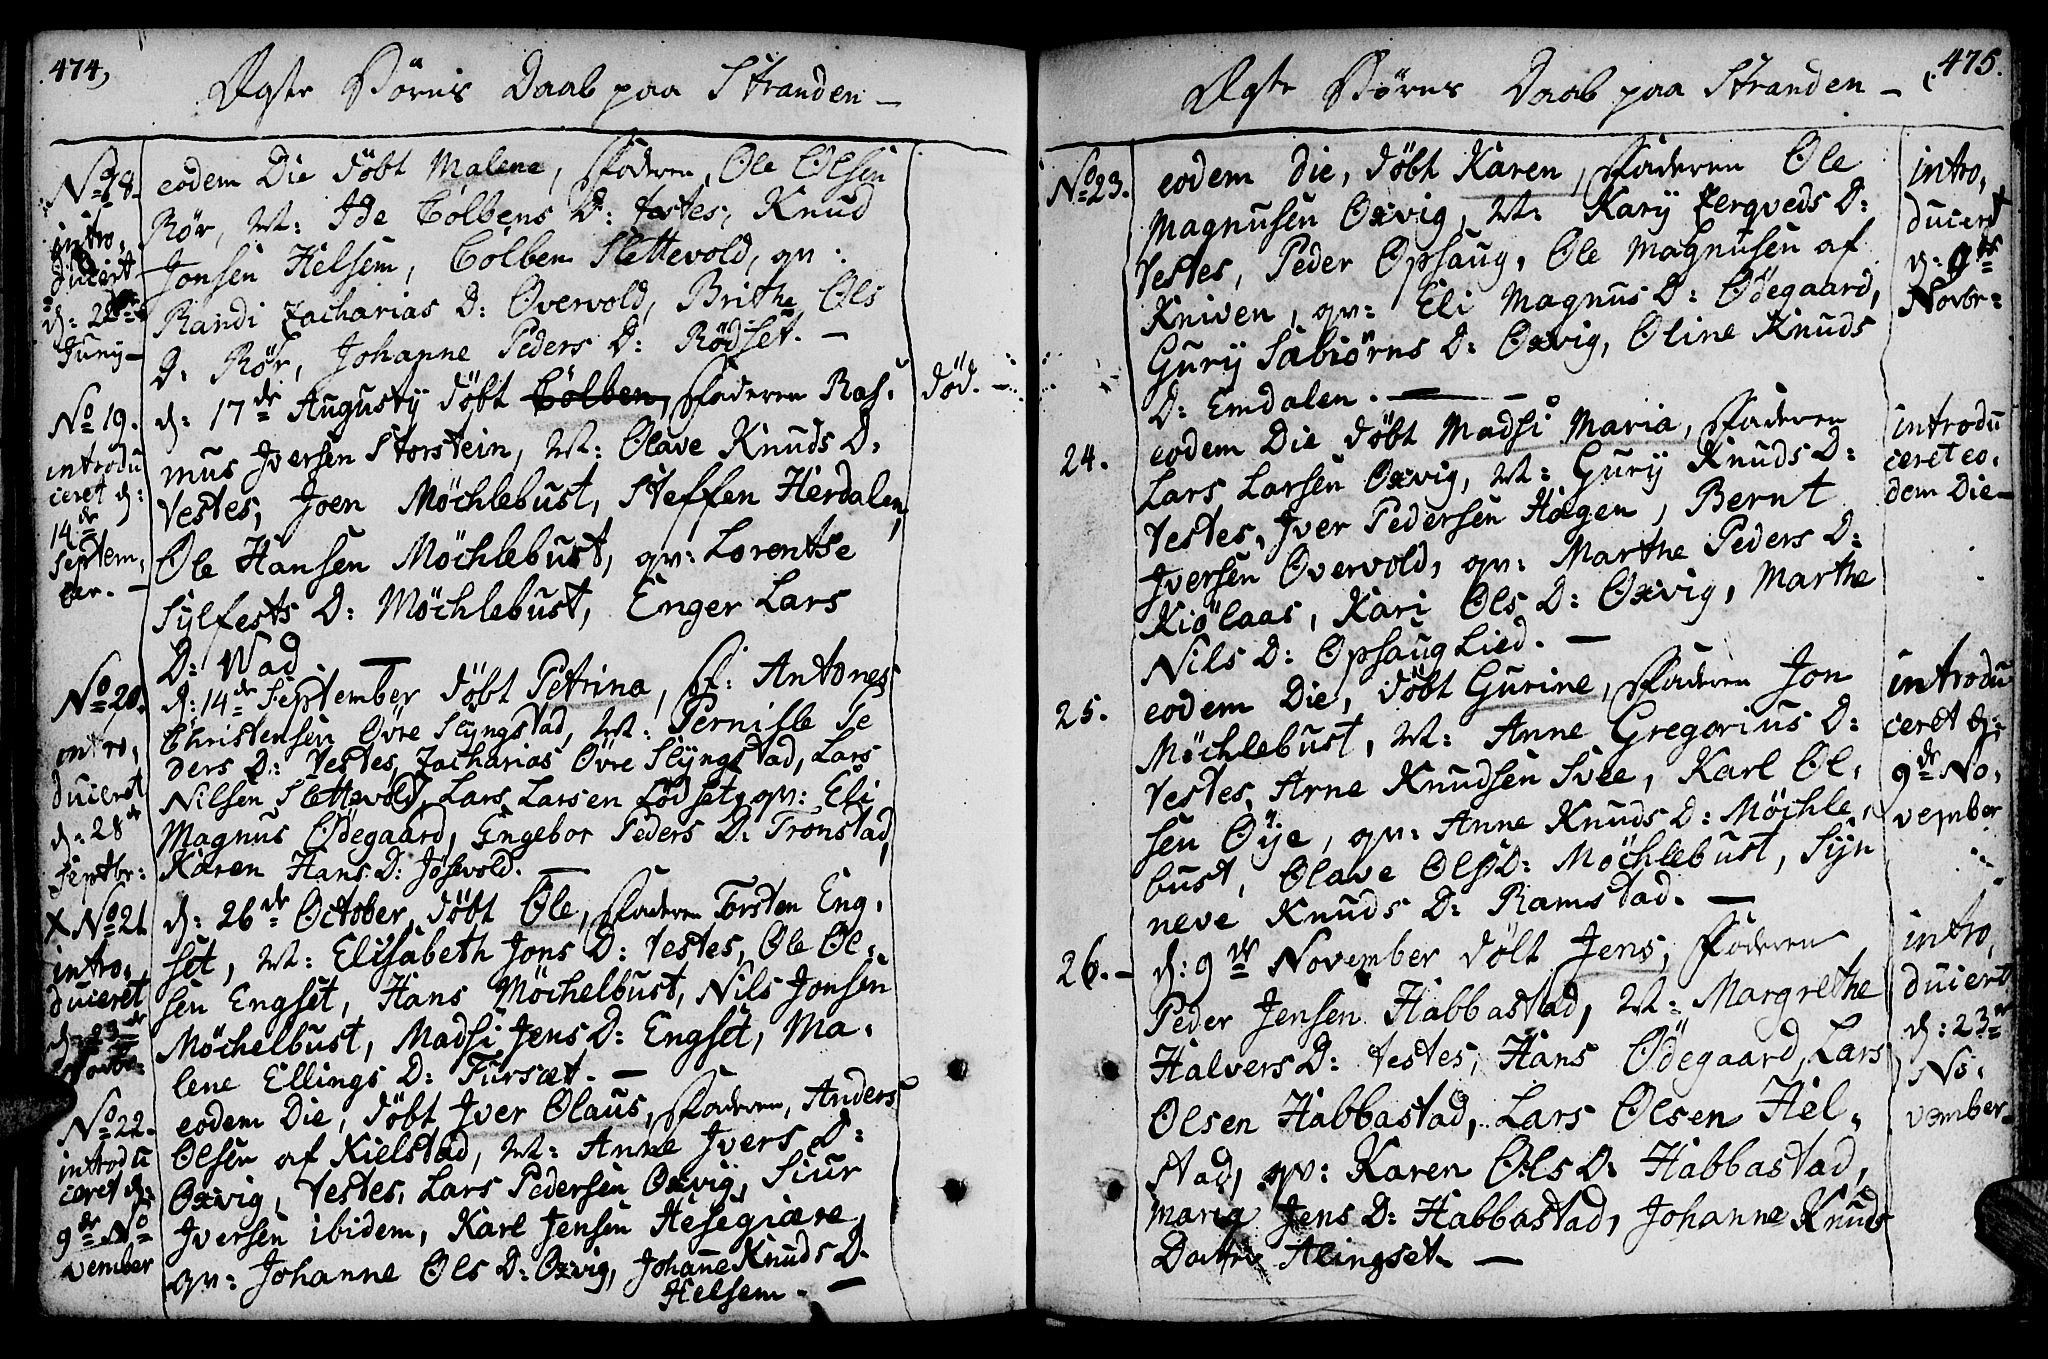 474,
Ægte Børns Daab paa Stranden –
No 18.
intro,
duceret
d: 22de
Juny –
eodem Die döbt Malene, Faderen, Ole Olsen
Rör, M: Ide Colbens D: testes, Knud
Jonsen Helsem, Colben Slettevold, qv:
Randi Zacharias D: Overvold, Brithe Ols
D: Rör, Johanne Peders D: Rödset. –
No 19.
introdu
ceret d:
14de
Septem,
ber. –
d: 17de Augusty döbt Cölben, Faderen Ras,
död. –
mus Jversen Storstein, M: Olave Knuds D:
Testes, Joen Möchlebust, Steffen Herdalen,
Ole Hansen Möchlebust, qv: Lorentse
Sylfests D: Möchlebust, Enger Lars
D: Wad. –
No 20.
intro,
duceret
d: 28de
Septbr:
d: 14de September döbt Petrina, F: Antones
Christensen Övre Slyngstad, M: Pernille Pe
ders D: Testes, Zacharias Övre Slyngstad, Lars
Nilsen Slettevold, Lars Larsen Lödset, qv: Eli
Magnus Ödegaard, Engebor Peders D: Tronstad,
Karen Hans D: Jösevold. –
X No 21
intro,
duceret
d: 23de
Novbr:
d: 26de October, döbt Ole, Faderen Torsten Eng,
set, M: Elisabeth Jons D: testes, Ole Ol,
sen Engset, Hans Möchelbust, Nils Jonsen
Möchelbust, Madsi Jens D: Engset, Ma,
lene Ellings D: Fursæt. –
No 22.
introdu
ceret d:
9de No
vember
eodem Die, döbt Jver Olaus, Faderen, Anders
Olsen af Kielstad, M: Anne Jvers D:
Oxvig, testes, Lars Pedersen Oxvig, Siur
Jversen ibidem, Karl Jensen Hesegiære,
qv: Johanne Ols D: Oxvig, Johanne Knuds D.
Helsem. –
475.
Ægte Börns Daab paa Stranden –
No 23.
eodem Die, döbt Karen, Faderen Ole
Magnusen Oxvig, M: Kary Zerqveds D:
Testes, Peder Opsaug, Ole Magnusen af
Kniven, qv: Eli Magnus D: Ödegaard,
Gury Sabiörns D: Oxvig, Oline Knuds
D: Emdalen. –
intro,
duceret
d: 9de
Novbr=
24.
eodem Die döbt Madsi Maria, Faderen
Lars Larsen Oxvig, M: Gury Knuds D:
Testes, Jver Pedersen Hagen, Bernt
Jversen Overvold, qv: Marthe Peders D:
Kiölaas, Kari Ols D: Oxvig, Marthe
Nils D: Opsaug Lied. –
introdu
ceret eo,
dem Die –
25.
eodem Die, döbt Gurine, Faderen Jon
Möchlebust, M: Anne Gregorius D:
Testes, Arne Knudsen Svee, Karl Ol,
sen Öye, qv: Anne Knuds D: Möchle,
bust, Olave Ols D: Möchlebust, Syn
neve Knuds D: Ramstad. –
introdu
ceret d:
9de No,
vember
26. –
d: 9de November döbt Jens, Faderen
Peder Jensen Habbastad, M: Margrethe
Halvers D: testes, Hans Ödegaard, Lars
Olsen Habbastad, Lars Olsen Hel,
stad, qv: Karen Ols D: Habbastad,
Marig Jens D: Habbastad, Johanne Knuds
Datter Alingset –
intro,
duceret
d: 23de
No,
vember –